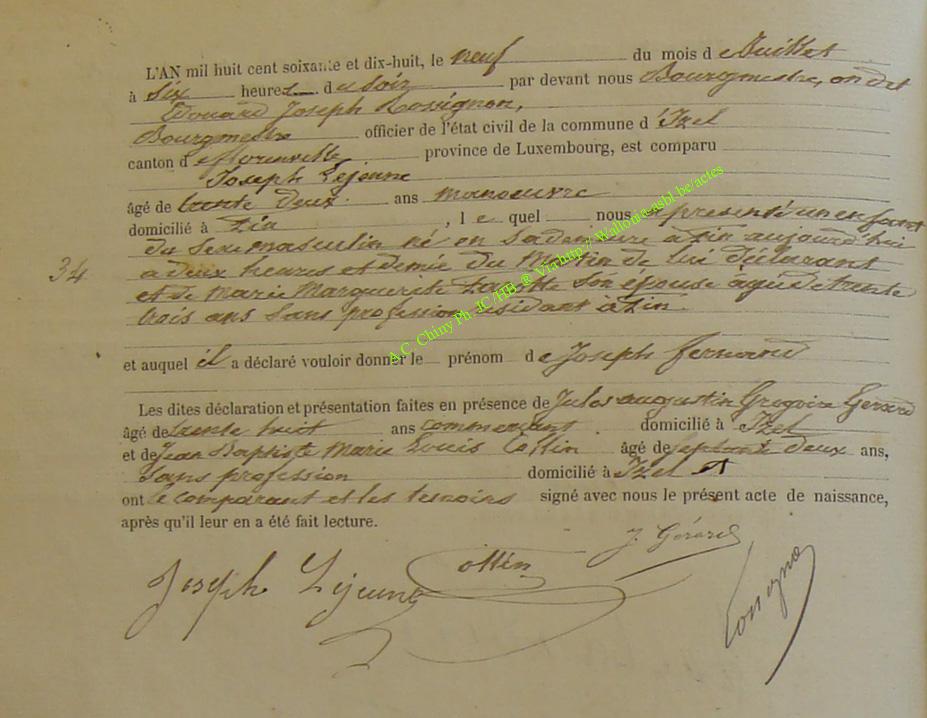 L'AN mil huit cent soixante et dix-huit, le neuf du mois de Juillet
à six heures du soir par devant nous Bourgmestre,
Edouard Joseph Rossignon,
Bourgmestre officier de l'état civil de la commune d'Izel
canton de florenville province de Luxembourg, est comparu
Joseph Lejeune
âgé de trente deux ans manoeuvre
domicilié à Pin, lequel nous a présenté un enfant
du sexe masculin né en sa demeure à Pin aujourd'hui
34
a deux heures et demie du Matin de lui déclarant
et de Marie Marguerete son épouse agée de trente
trois ans sans profession résidant à Pin
et auquel il a déclaré vouloir donner le prénom de Joseph fernand
Les dites déclaration et présentation faites en présence de Jules augustin Gregoire Gerard
âgé de trente huit ans commerçant domicilié à Izel
et de Jean Baptiste Marie Louis Collin âgé de septante deux ans,
sans profession domicilié à Izel et
ont le comparant et les temoins signé avec nous le présent acte de naissance,
après qu'il leur en a été fait lecture.
Joseph Lejeune
Collin
J. Gérard
A.C. Chiny Ph. JC/HB @ Via http://Wallonia-asbl.be/actes